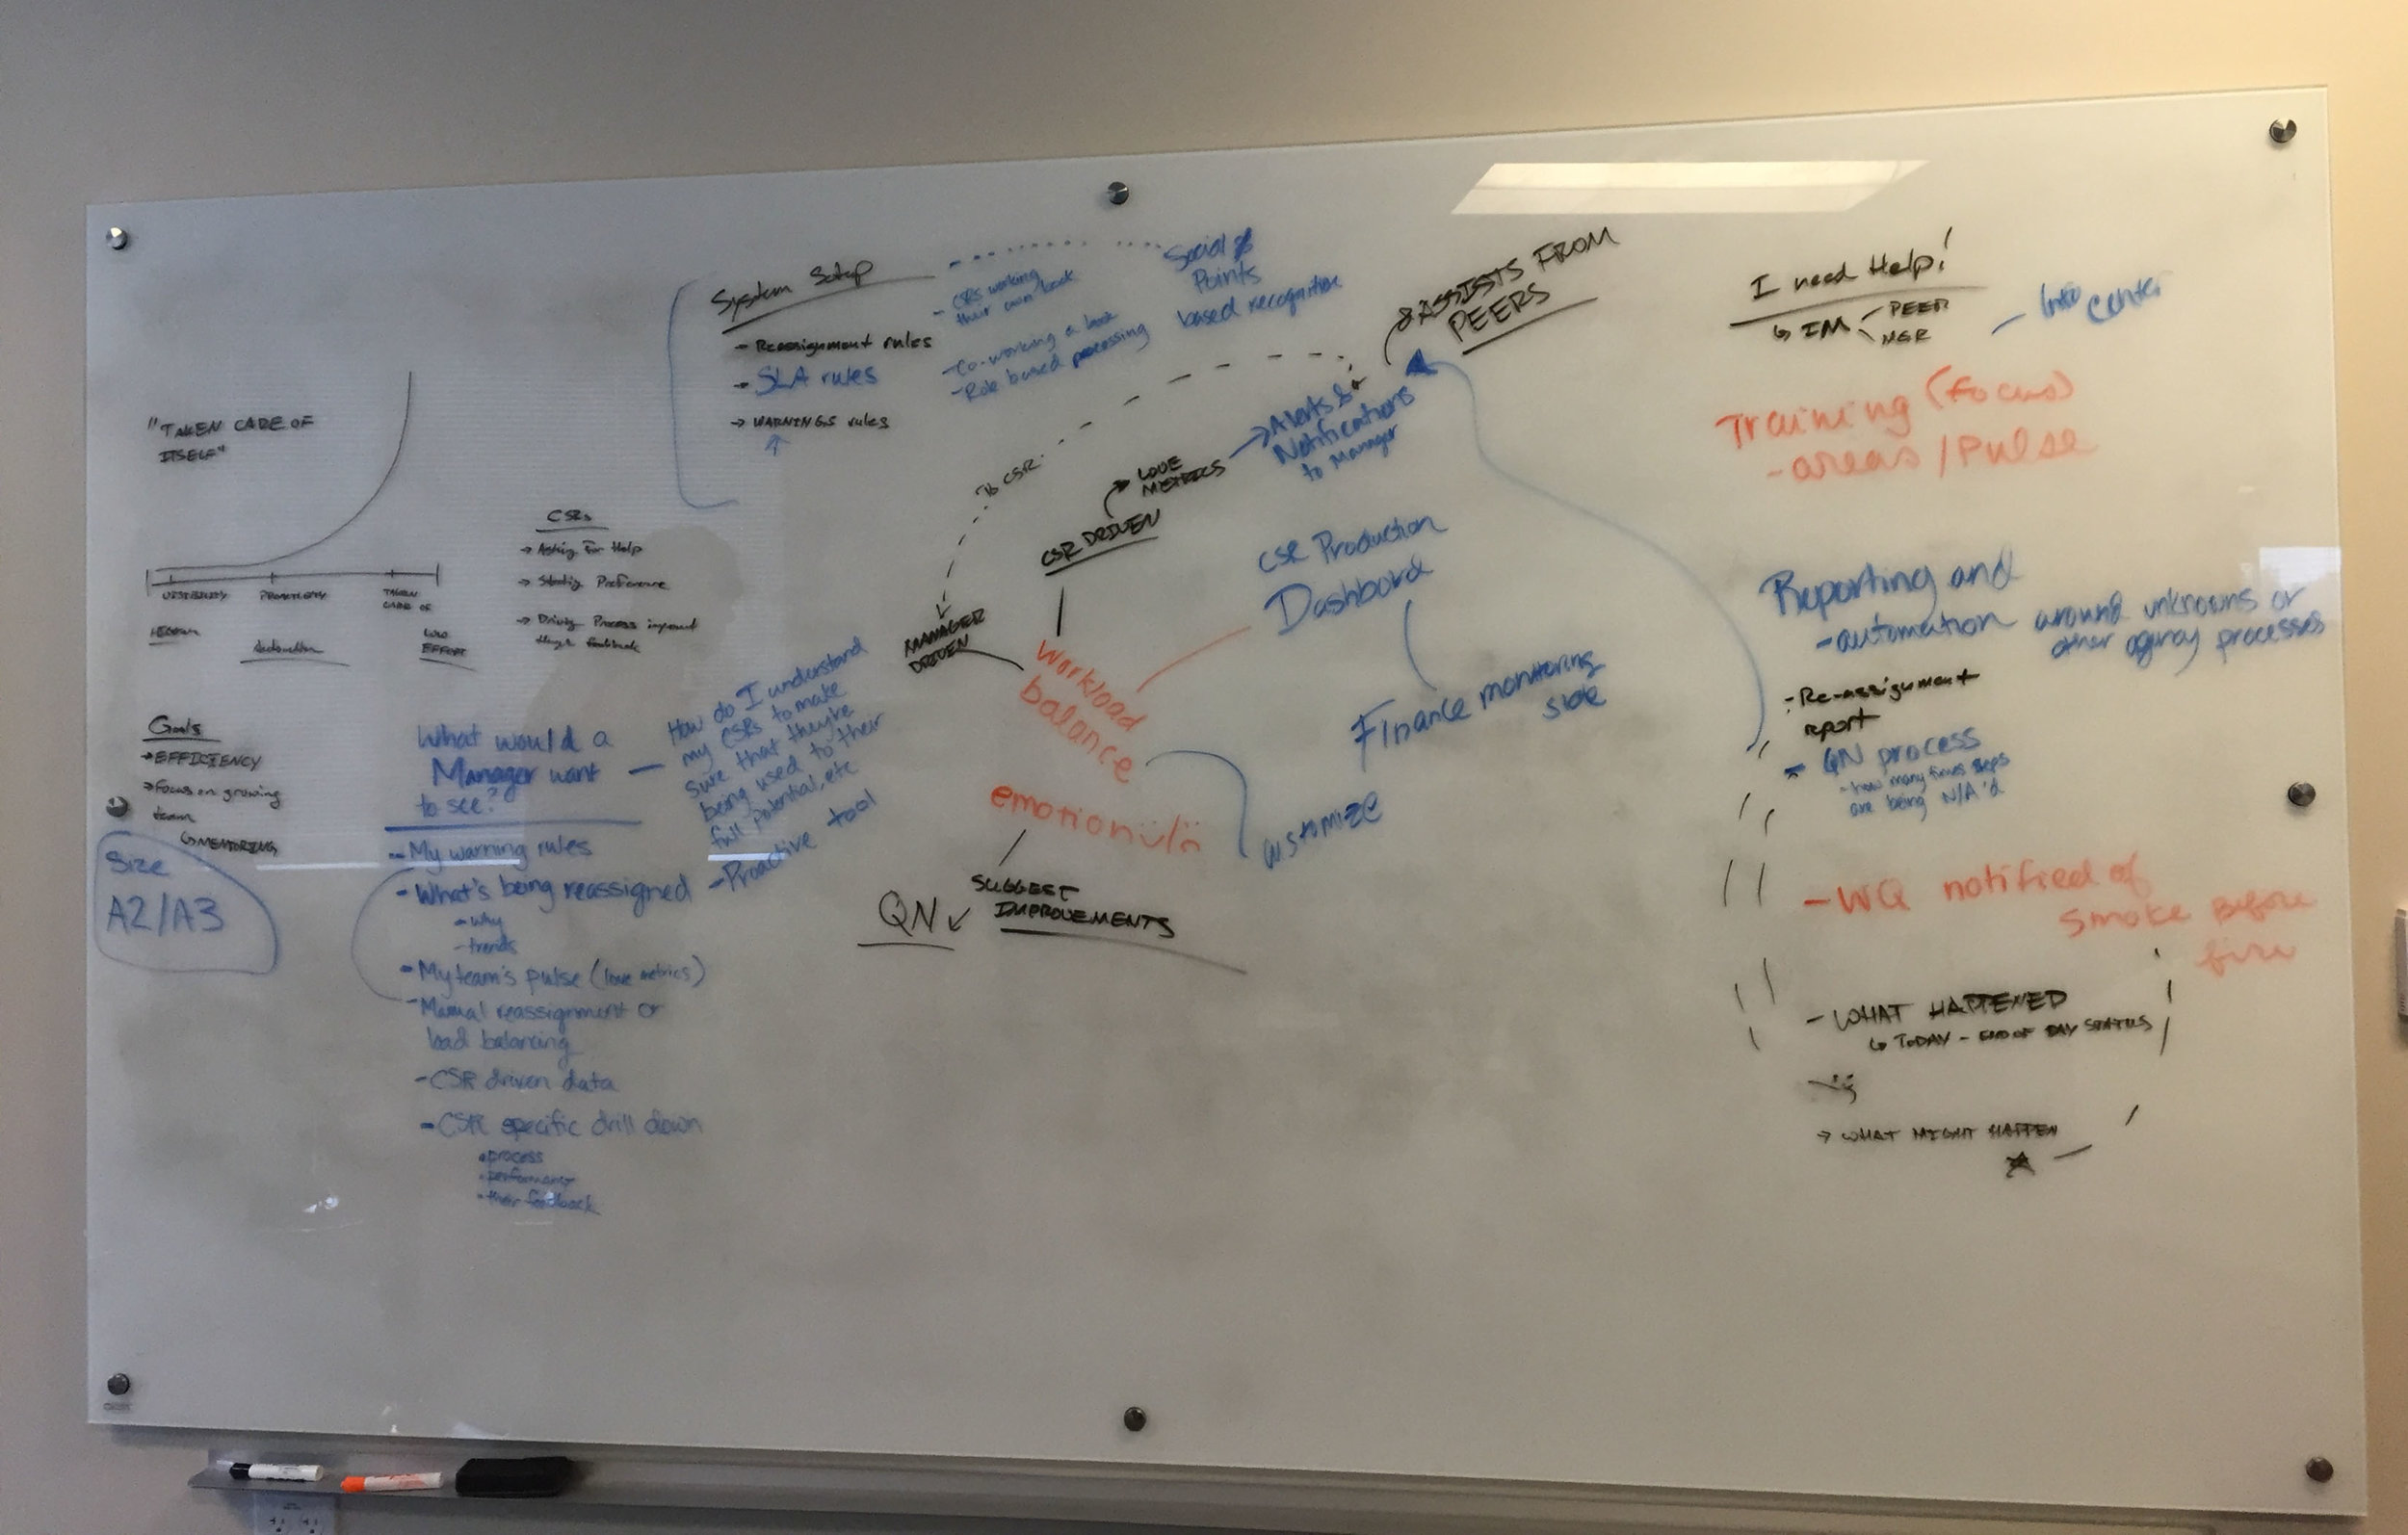 "TAKEN CARE OF
ITSELF"
VISIBILITY
TAKEN
CARE OF
Automation
LOW
EFFORT
CSRs
→ Asking For Help
→ Stating Preference
→ Driving Process
Goals
→ EFFICIENCY
→ Focus on growing
team
↳ MENTORING
Size
A2/A3
What would a
Manager want
to see?
- My warning rules
- What's being reassigned
- why
- trends
- My team's pulse (love metrics)
- Manual reassignment or
load balancing
- CSR driven data
- CSR specific drill down
• process
• performance
• their feedback
How do I understand
my CSRs to make
sure that they're
being used to their
full potential, etc
- Proactive tool
System Setup
- Reassignment rules
- SLA rules
→ WARNINGS rules
- CSRs working
their own book
- Co-working a book
- Role based processing
Social &
Points
based recognition
& ASSISTS FROM
PEERS
→ Alerts &
Notifications
to Manager
To CSR
LOVE
METRICS
CSR DRIVEN
MANAGER
DRIVEN
Workload
balance
CSR Production
Dashboard
Finance monitoring
side
Customize
SUGGEST
IMPROVEMENTS
QN
I need Help!
↳ IM
PEER
MGR
- Info
Center
Training (focus)
- areas / Pulse
Reporting and
- automation around unknowns or
other agency processes
- Re-assignment
report
- QN process
- how many times steps
are being N/A'd
- WQ notified of
Smoke Before
fire
- WHAT HAPPENED
↳ TODAY - END OF DAY STATUS
→ WHAT MIGHT HAPPEN